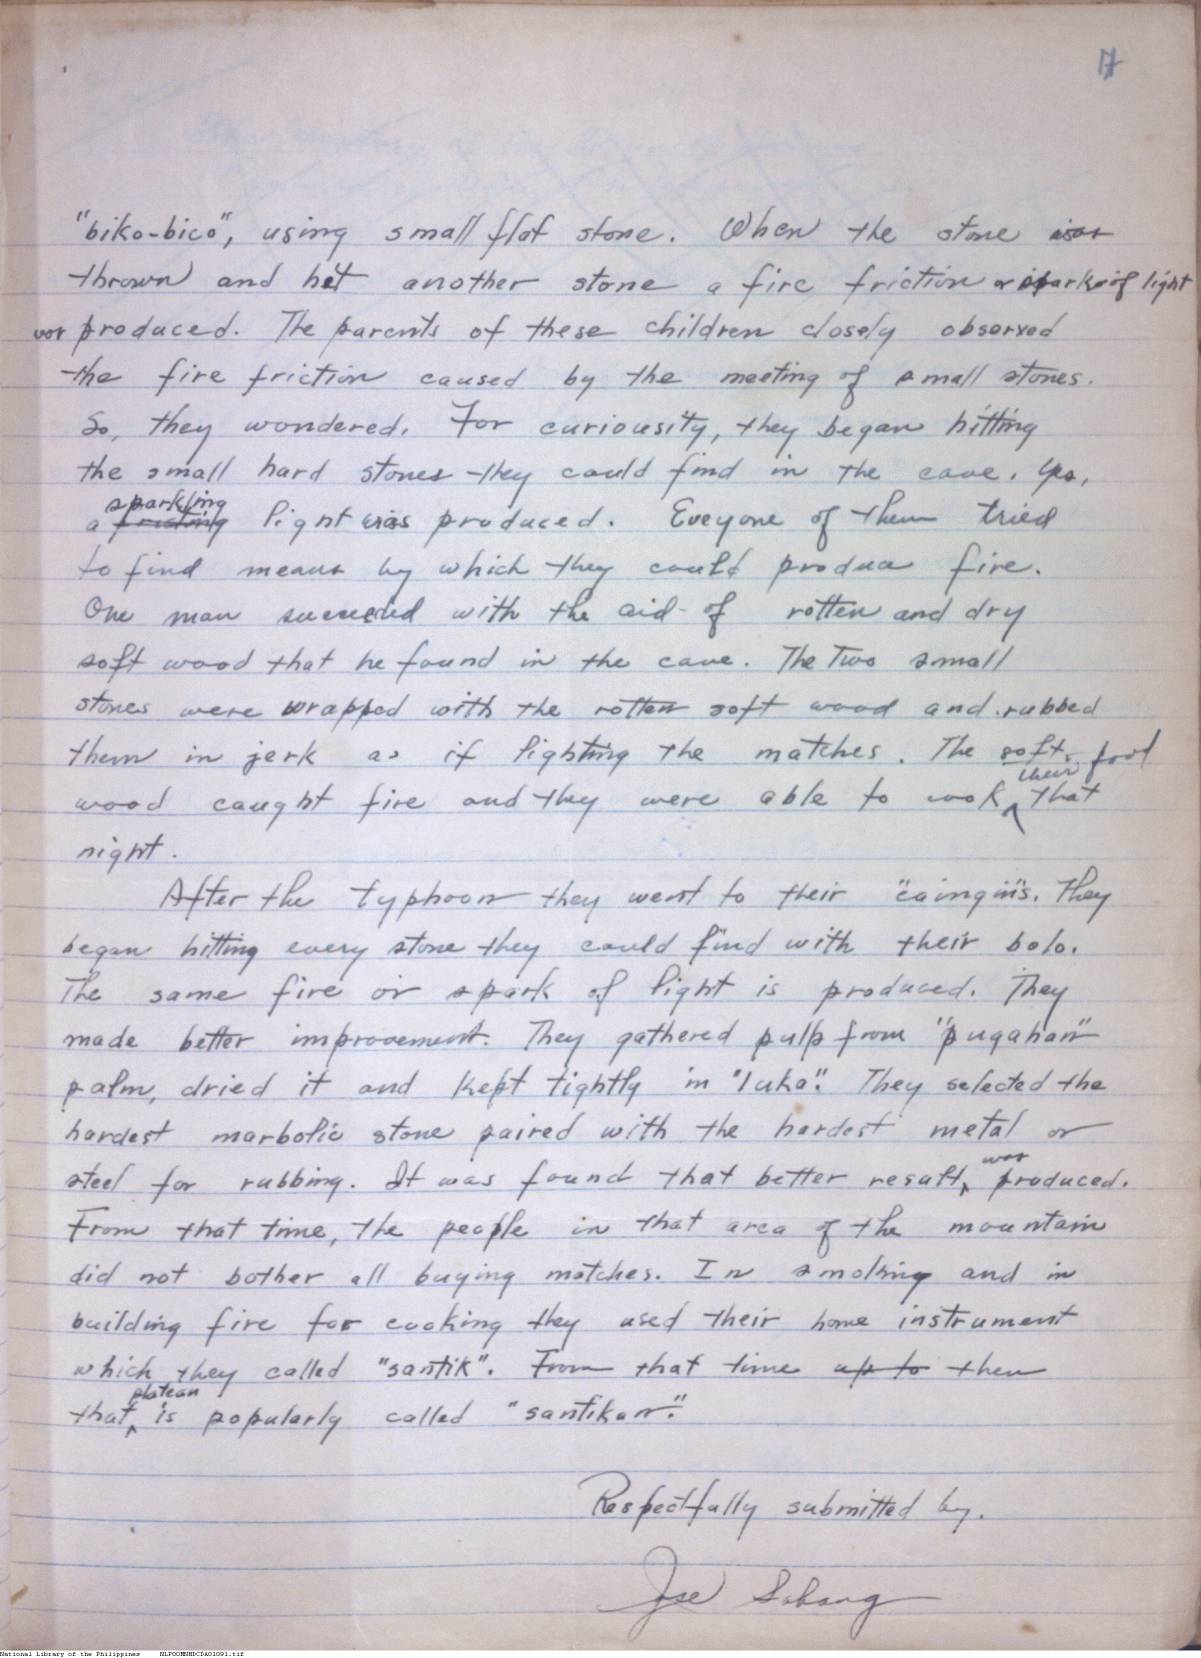 17
"biko-bico", using small flat stone. When the stone was
thrown and hit another stone a fire friction or spark of light
was produced. The parents of these children closely observed
the fire friction caused by the meeting of small stones.
So, they wondered. For curiousity, they began hitting
the small hard stones they could find in the cave. Yes,
sparkling
a light was produced. Eveyone of them tried
to find means by which they could produce fire.
One man succeeded with the aid of rotten and dry
soft wood that he found in the cave. The Two small
stones were wrapped with the rotten soft wood and rubbed
them in jerk as if lighting the matches. The soft
their food
wood caught fire and they were able to cook that
night.
After the typhoon they went to their "caingin"s. They
began hitting every stone they could find with their bolo.
The same fire or spark of light is produced. They
made better improvement. They gathered pulp from "pugahan"
palm, dried it and kept tightly in "luka". They selected the
hardest marbolic stone paired with the hardest metal or
was
steel for rubbing. It was found that better result produced.
From that time, the people in that area of the mountain
did not bother all buying matches. In smoking and in
building fire for cooking they used their home instrument
which they called "santik". From that time up to then
plateau
that is popularly called "santikan."
Respectfully submitted by.
Jose Sabang
National Library of the Philippines NLPOOMNHDCDA01091.tif